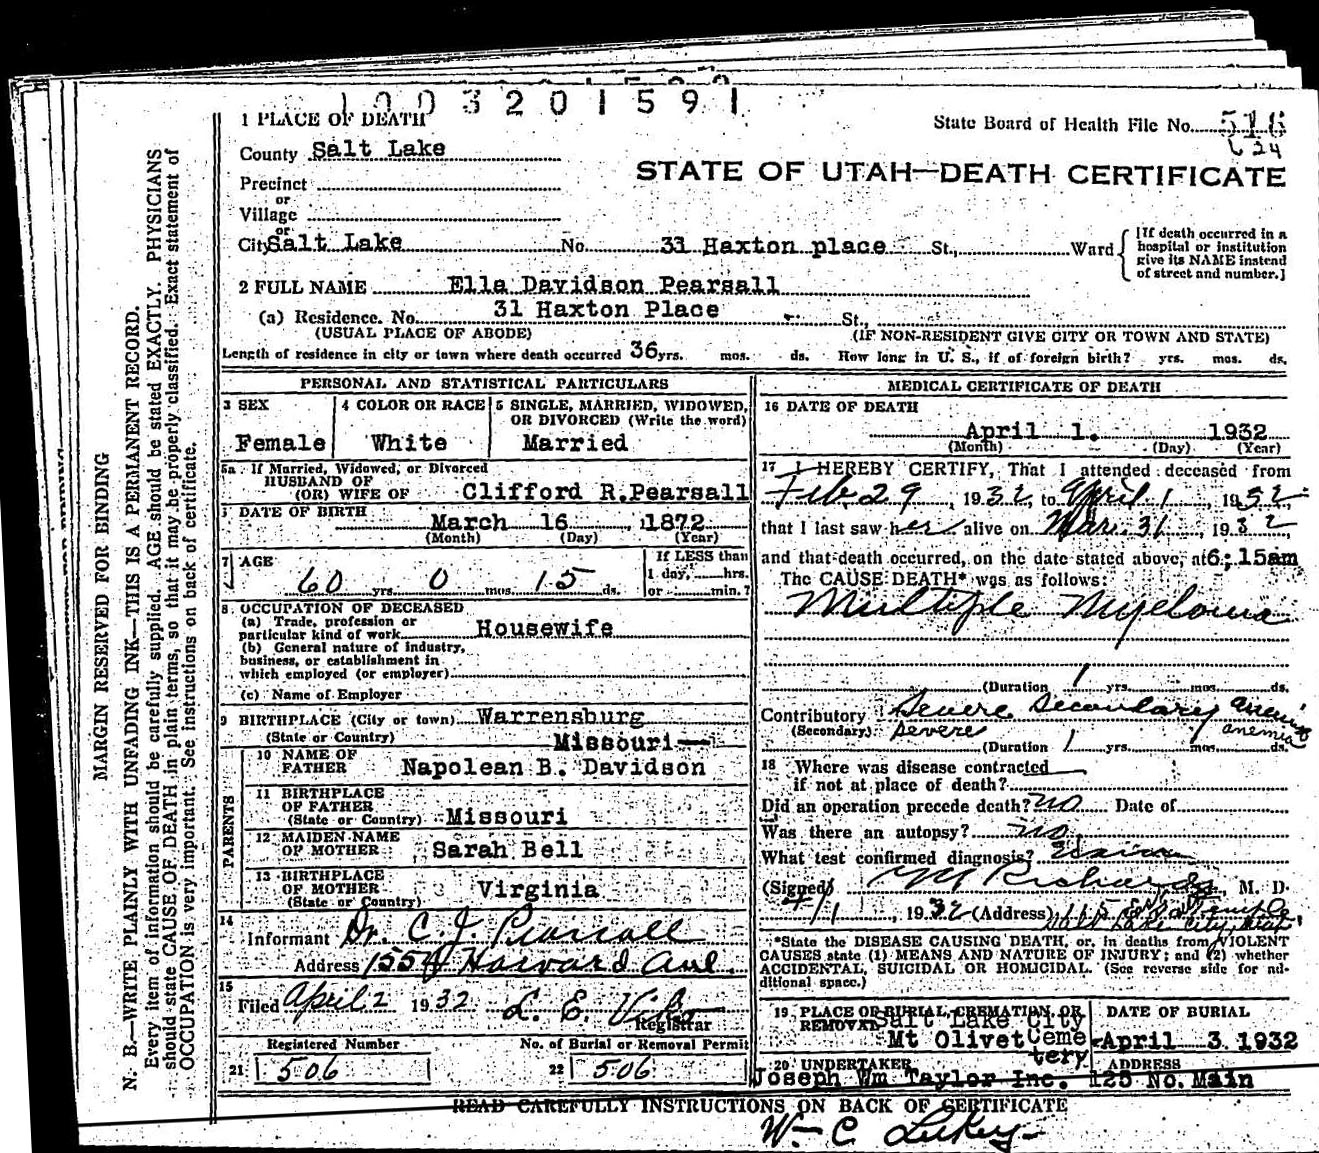 1003201591
1 PLACE OF DEATH
State Board of Health File No. 516
624
County Salt Lake
STATE OF UTAH—DEATH CERTIFICATE
Precinct
or
Village
or
City Salt Lake No. 31 Haxton place St., Ward
[If death occurred in a
hospital or institution
give its NAME instead
of street and number.]
2 FULL NAME Ella Davidson Pearsall
(a) Residence. No. 31 Haxton Place St.,
(USUAL PLACE OF ABODE) (IF NON-RESIDENT GIVE CITY OR TOWN AND STATE)
Length of residence in city or town where death occurred 36 yrs. mos. ds. How long in U. S., if of foreign birth? yrs. mos. ds.
PERSONAL AND STATISTICAL PARTICULARS
3 SEX
Female
4 COLOR OR RACE
White
5 SINGLE, MARRIED, WIDOWED,
OR DIVORCED (Write the word)
Married
5a If Married, Widowed, or Divorced
HUSBAND OF
(OR) WIFE OF Clifford R.Pearsall
DATE OF BIRTH
March 16 , 1872
(Month) (Day) (Year)
7 AGE
60 yrs. 0 mos. 15 ds.
If LESS than
1 day, hrs.
or min.?
8 OCCUPATION OF DECEASED
(a) Trade, profession or
particular kind of work Housewife
(b) General nature of industry,
business, or establishment in
which employed (or employer)
(c) Name of Employer
9 BIRTHPLACE (City or town) Warrensburg
(State or Country) Missouri—
PARENTS
10 NAME OF
FATHER Napolean B. Davidson
11 BIRTHPLACE
OF FATHER
(State or Country) Missouri
12 MAIDEN NAME
OF MOTHER Sarah Bell
13 BIRTHPLACE
OF MOTHER
(State or Country) Virginia
14
Informant Dr. C. J. Pearsall
Address 1554 Harvard Ave.
15
Filed April 2 1932 L. E.
Registrar
Registered Number
21 506
No. of Burial or Removal Permit
22 506
MEDICAL CERTIFICATE OF DEATH
16 DATE OF DEATH
April 1. 1932
(Month) (Day) (Year)
17 I HEREBY CERTIFY, That I attended deceased from
Feb 29, 1932 to April 1, 1932,
that I last saw her alive on Mar. 31, 1932,
and that death occurred, on the date stated above, at 6;15am
The CAUSE DEATH* was as follows:
Multiple Myeloma
(Duration 1 yrs. mos. ds.
Contributory Severe Secondary anemia
(Secondary) Severe anemia
(Duration 1 yrs. mos. ds.
18 Where was disease contracted
if not at place of death?
Did an operation precede death? no Date of
Was there an autopsy? no
What test confirmed diagnosis?
(Signed) Richards, M. D.
4/1, 1932 (Address)
Salt Lake City, Utah
*State the DISEASE CAUSING DEATH, or, in deaths from VIOLENT
CAUSES state (1) MEANS AND NATURE OF INJURY; and (2) whether
ACCIDENTAL, SUICIDAL OR HOMICIDAL. (See reverse side for ad-
ditional space.)
19 PLACE OR BURIAL, CREMATION, OR
REMOVAL Salt Lake City
Mt Olivet Ceme
tery
DATE OF BURIAL
April 3 1932
20 UNDERTAKER
Joseph Wm Taylor Inc.
ADDRESS
125 No. Main
READ CAREFULLY INSTRUCTIONS ON BACK OF CERTIFICATE
MARGIN RESERVED FOR BINDING
N. B.—WRITE PLAINLY WITH UNFADING INK—THIS IS A PERMANENT RECORD.
Every item of information should be carefully supplied. AGE should be stated EXACTLY. PHYSICIANS
should state CAUSE OF DEATH in plain terms, so that it may be properly classified. Exact statement of
OCCUPATION is very important. See instructions on back of certificate.